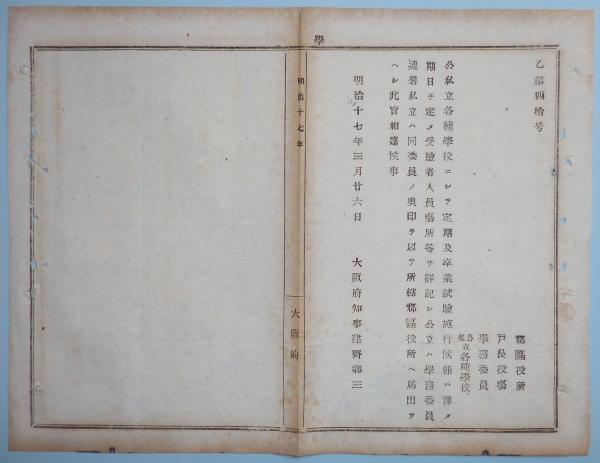 乙第四拾号
郡區役所
戸長役塲
學務委員
公私立各種學校
公私立各種學校ニシテ定期及卒業試驗施行候節ハ豫メ
期日ヲ定メ受驗者人員塲所等ヲ詳記シ公立ハ學務委員
連署私立ハ同委員ノ奥印ヲ以テ所轄郡區役所ヘ届出ツ
ヘシ此旨相達候事
明治十七年三月廿六日
大阪府知事建野郷三
學
明治十七年
大阪府